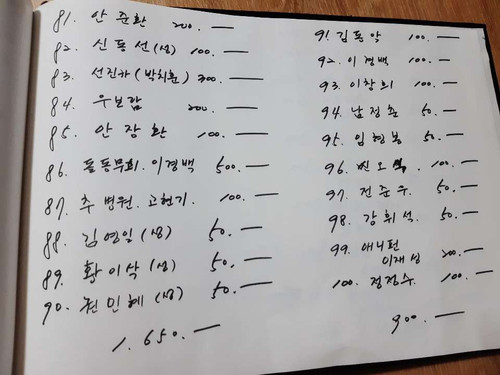 81. 안준환 200. —
82. 신동선(생) 100. —
83. 선진카(박치훈) 300. —
84. 우보람 200. —
85. 안장환 100. —
86. 돌동무회. 이경백 500. —
87. 추병원. 고현기. 100. —
88. 김영임(생) 50. —
89. 황이삭(생) 50. —
90. 천민혜(생) 50. —
1. 650. —
91. 김동악 100. —
92. 이경백 100. —
93. 이창희 100. —
94. 남정훈 50. —
95. 임현봉 50. —
96. 100. —
97. 전준우. 50. —
98. 강휘석. 50. —
99. 애니펜
이재성 200. —
100. 정정수. 100. —
900. —